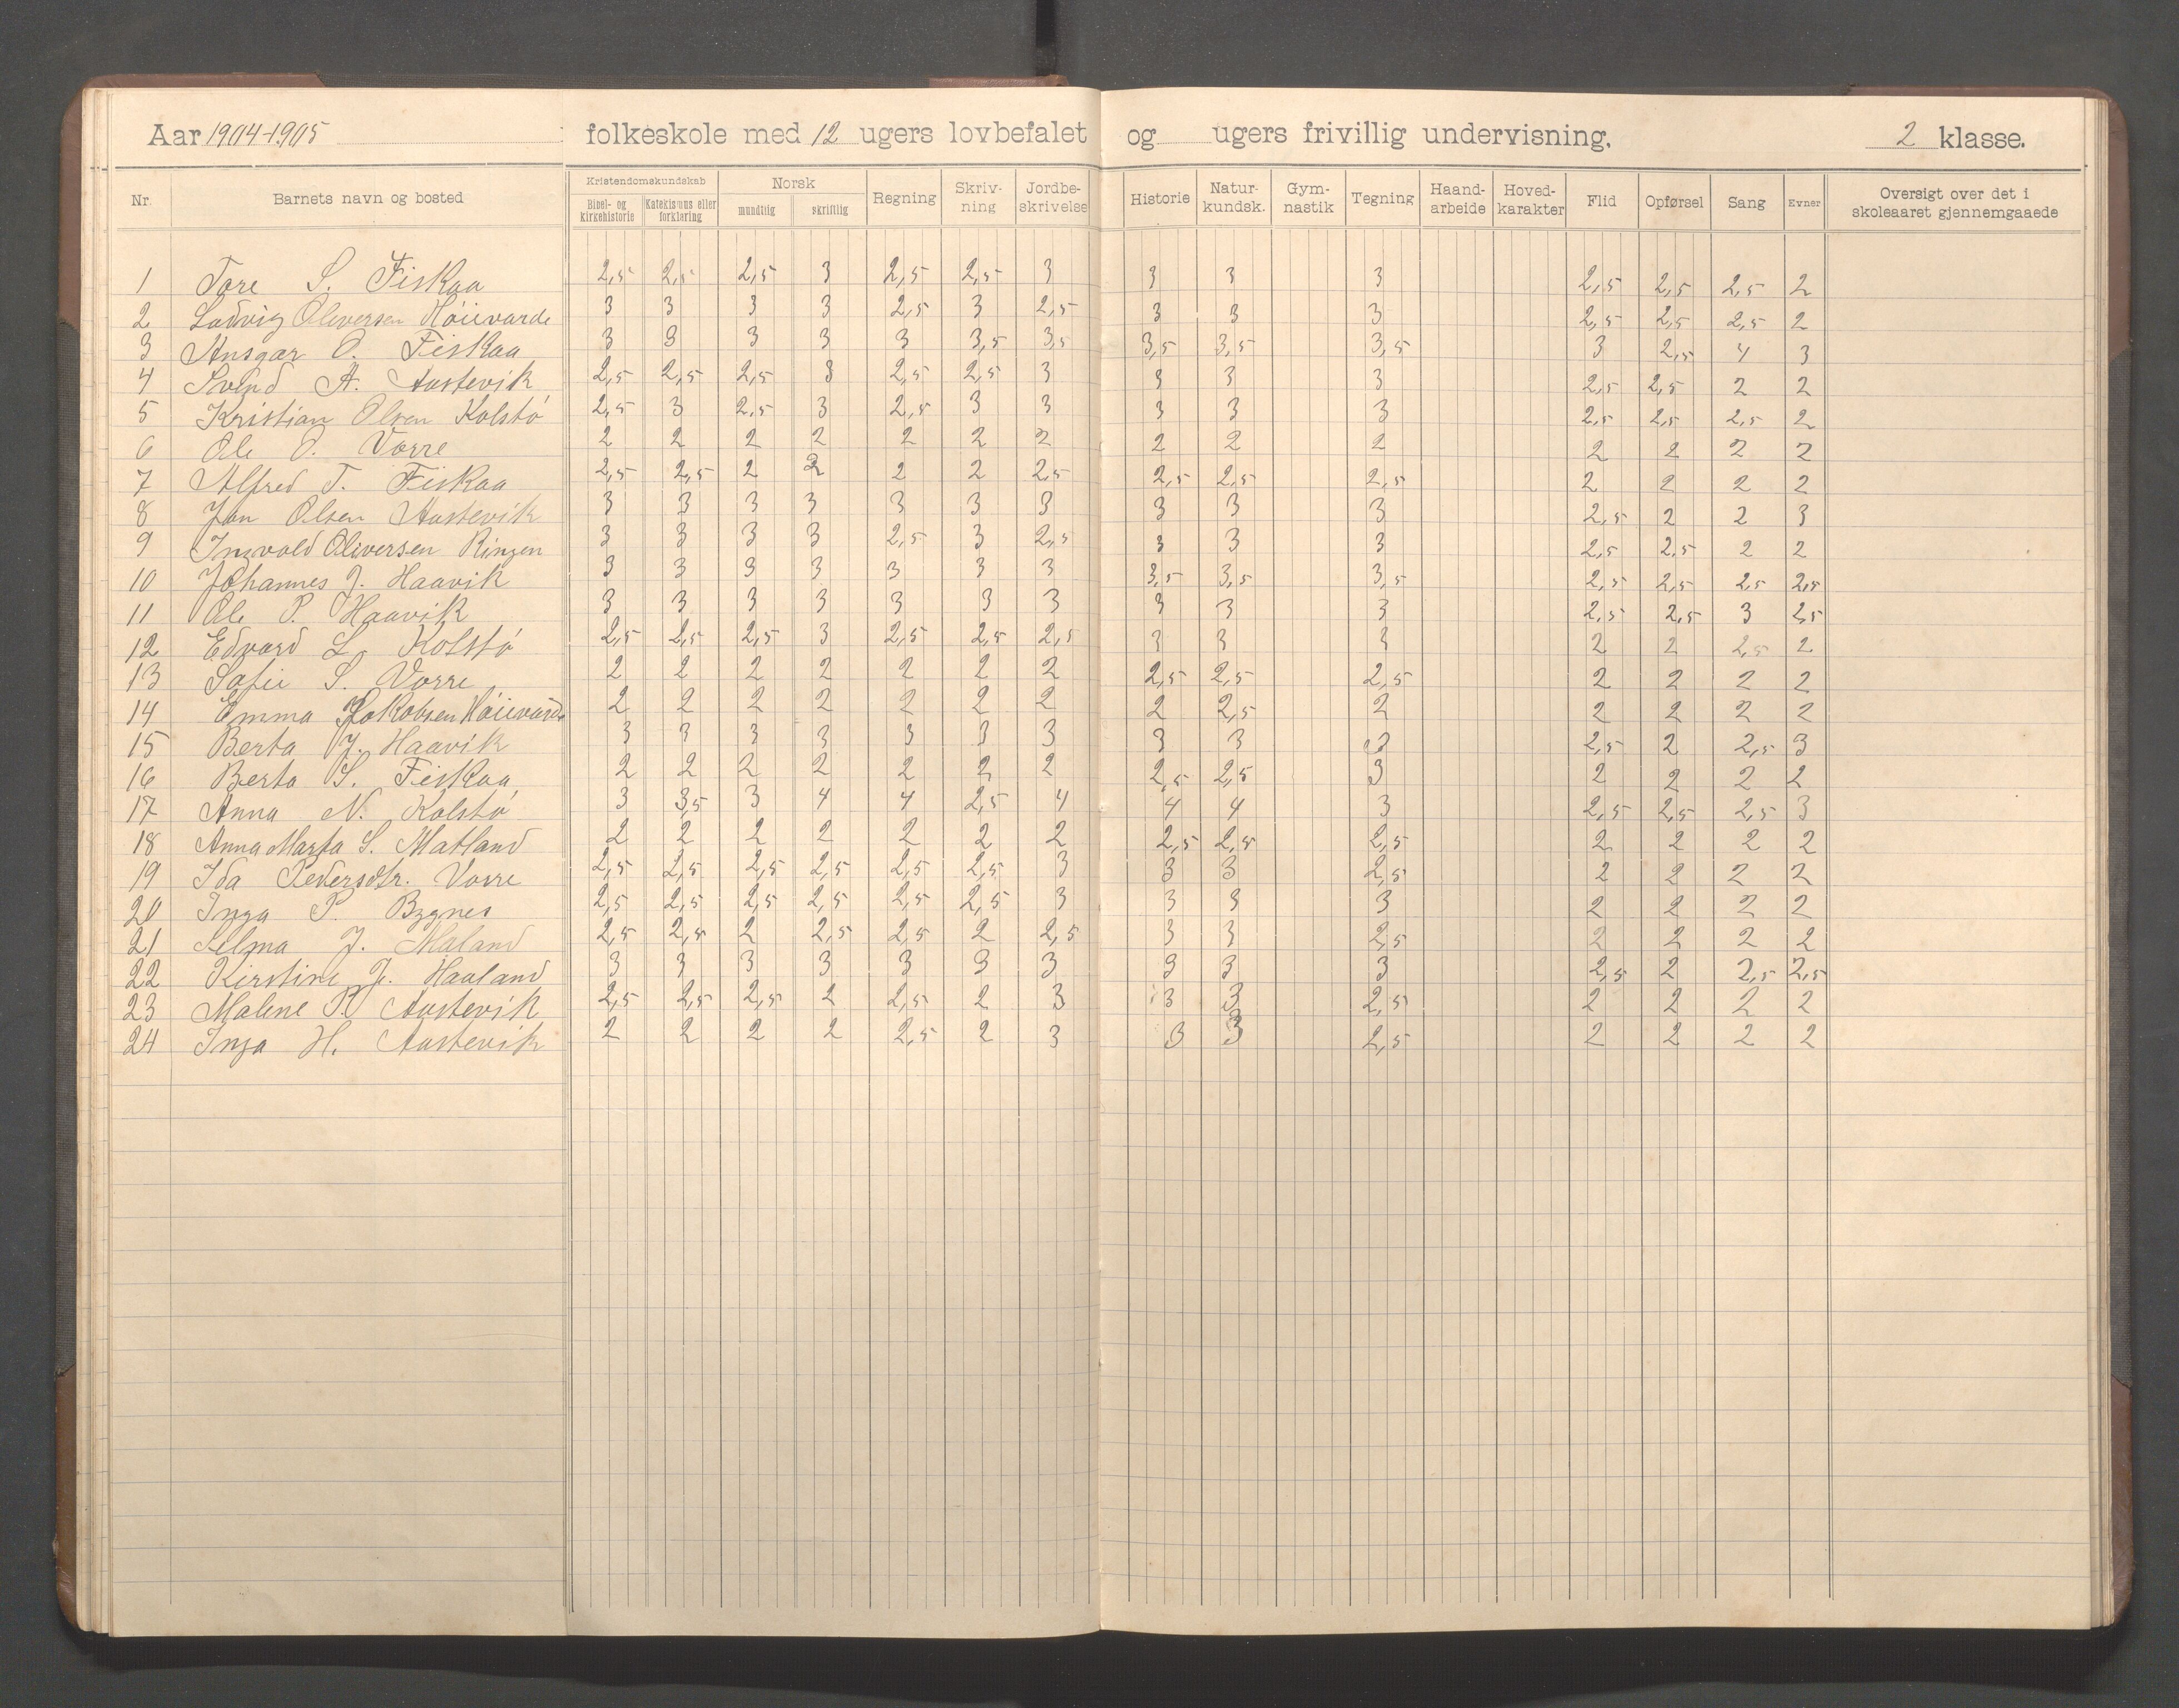 Aar 1904-1905 folkeskole med 12 ugers lovbefalet og ugers frivillig undervisning. 2 klasse.
Nr. Barnets navn og bosted Kristendomskundskab Bibel- og kirkehistorie Katekismus eller forklaring Norsk mundtlig skriftlig Regning Skriv-ning Jordbe-skrivelse Historie Natur-kundsk. Gym-nastik Tegning Haand-arbeide Hoved-karakter Flid Opførsel Sang Evner Oversigt over det i skoleaaret gjennemgaaede
1 Tore S. Fiskaa 2,5 2,5 2,5 3 2,5 2,5 3 3 3 3 2,5 2,5 2,5 2
2 Ludvig Oliversen Høievarde 3 3 3 3 2,5 3 2,5 3 3 3 2,5 2,5 2,5 2
3 Ansgar O. Fiskaa 3 3 3 3 3 3,5 3,5 3,5 3,5 3,5 3 2,5 4 3
4 Svend A. Austevik 2,5 2,5 2,5 3 2,5 2,5 3 3 3 3 2,5 2,5 2 2
5 Kristian Olsen Kolstø 2,5 3 2,5 3 2,5 3 3 3 3 3 2,5 2,5 2,5 2
6 Ole O. Vorre 2 2 2 2 2 2 2 2 2 2 2 2 2 2
7 Alfred T. Fiskaa 2,5 2,5 2 2 2 2 2,5 2,5 2,5 2,5 2 2 2 2
8 Jon Olsen Austevik 3 3 3 3 3 3 3 3 3 3 2,5 2 2 3
9 Ingvald Oliversen Ringen 3 3 3 3 2,5 3 2,5 3 3 3 2,5 2,5 2 2
10 Johannes J. Haavik 3 3 3 3 3 3 3 3,5 3,5 3,5 2,5 2,5 2,5 2,5
11 Ole P. Haavik 3 3 3 3 3 3 3 3 3 3 2,5 2,5 3 2,5
12 Edvard L. Kolstø 2,5 2,5 2,5 3 2,5 2,5 2,5 3 3 3 2 2 2,5 2
13 Sofie S. Vorre 2 2 2 2 2 2 2 2,5 2,5 2,5 2 2 2 2
14 Emma Jakobsen Høievarde 2 2 2 2 2 2 2 2 2,5 2 2 2 2 2
15 Berta J. Haavik 3 3 3 3 3 3 3 3 3 3 2,5 2 2,5 3
16 Berta S. Fiskaa 2 2 2 2 2 2 2 2,5 2,5 3 2 2 2 2
17 Anna N. Kolstø 3 3,5 3 4 4 2,5 4 4 4 3 2,5 2,5 2,5 3
18 Anna Marta S. Matland 2 2 2 2 2 2 2 2,5 2,5 2,5 2 2 2 2
19 Ida Pedersdtr. Vorre 2,5 2,5 2,5 2,5 2,5 2,5 3 3 3 2,5 2 2 2 2
20 Inga P. Bygnes 2,5 2,5 2,5 2,5 2,5 2,5 3 3 3 3 2 2 2 2
21 Selma J. Maland 2,5 2,5 2 2,5 2,5 2 2,5 3 3 2,5 2 2 2 2
22 Kirstine J. Haaland 3 3 3 3 3 3 3 3 3 3 2,5 2 2,5 2,5
23 Malene P. Austevik 2,5 2,5 2,5 2 2,5 2 3 3 3 2,5 2 2 2 2
24 Inga H. Austevik 2 2 2 2 2,5 2 3 3 3 2,5 2 2 2 2